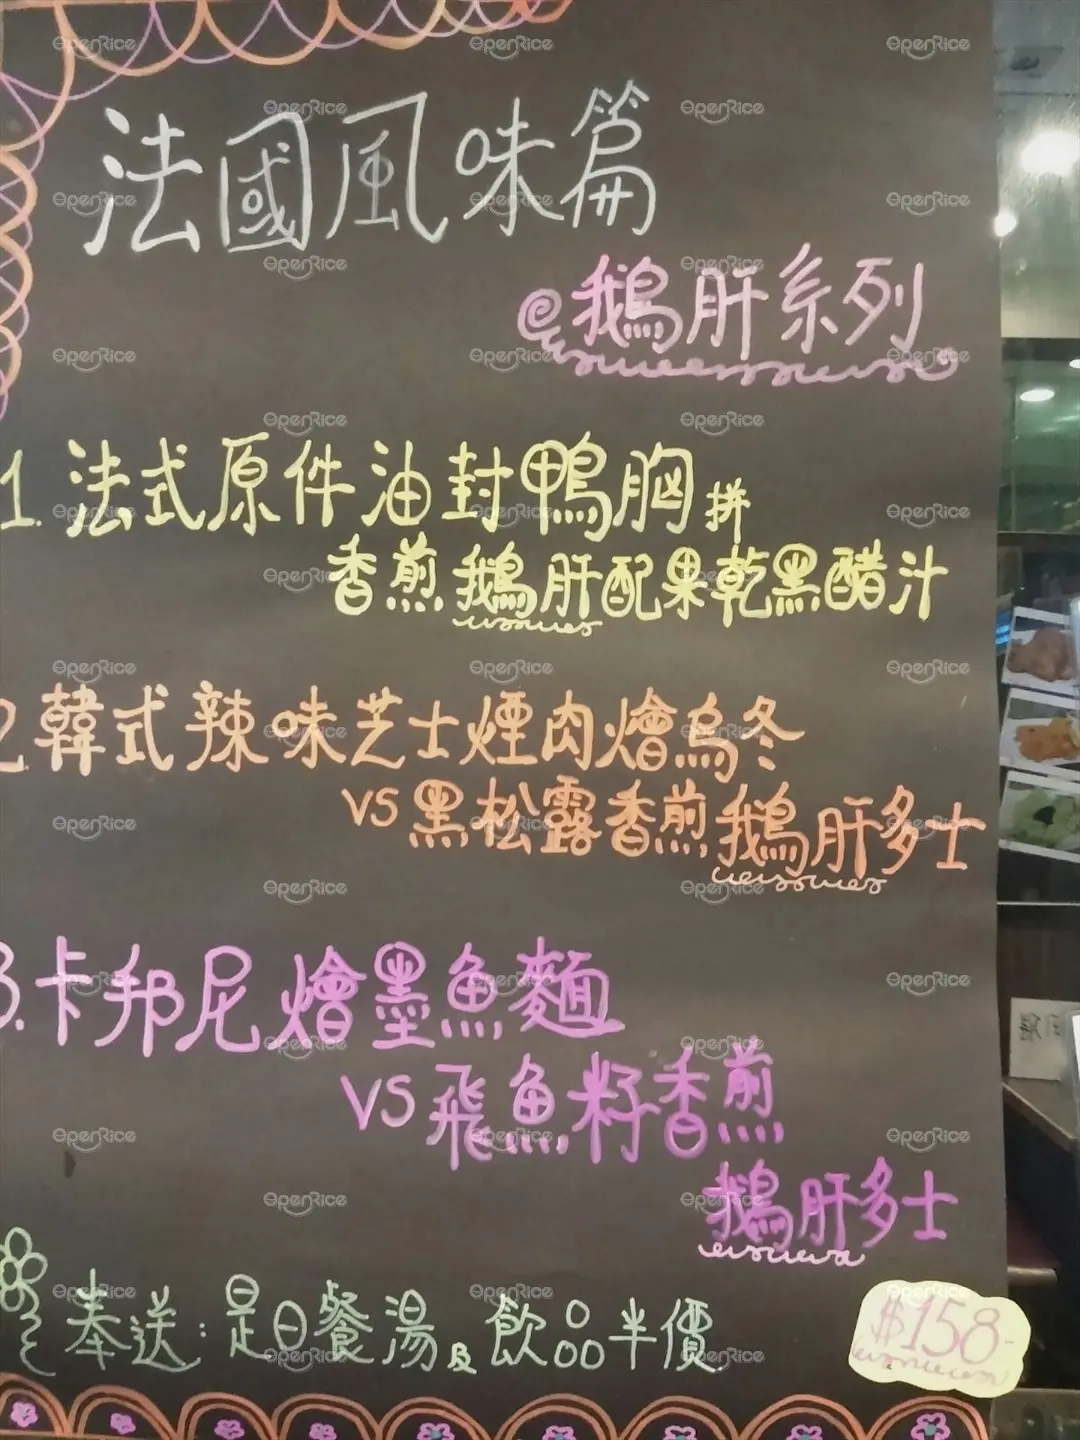 法國風味篇
鵝肝系列
1. 法式原件油封鴨胸拼
香煎鵝肝配果乾黑醋汁
2 韓式辣味芝士煙肉燴烏冬
VS 黑松露香煎鵝肝多士
3. 卡邦尼燴墨魚麵
VS 飛魚籽香煎
鵝肝多士
奉送：是日餐湯及飲品半價
$158-
OpenRice